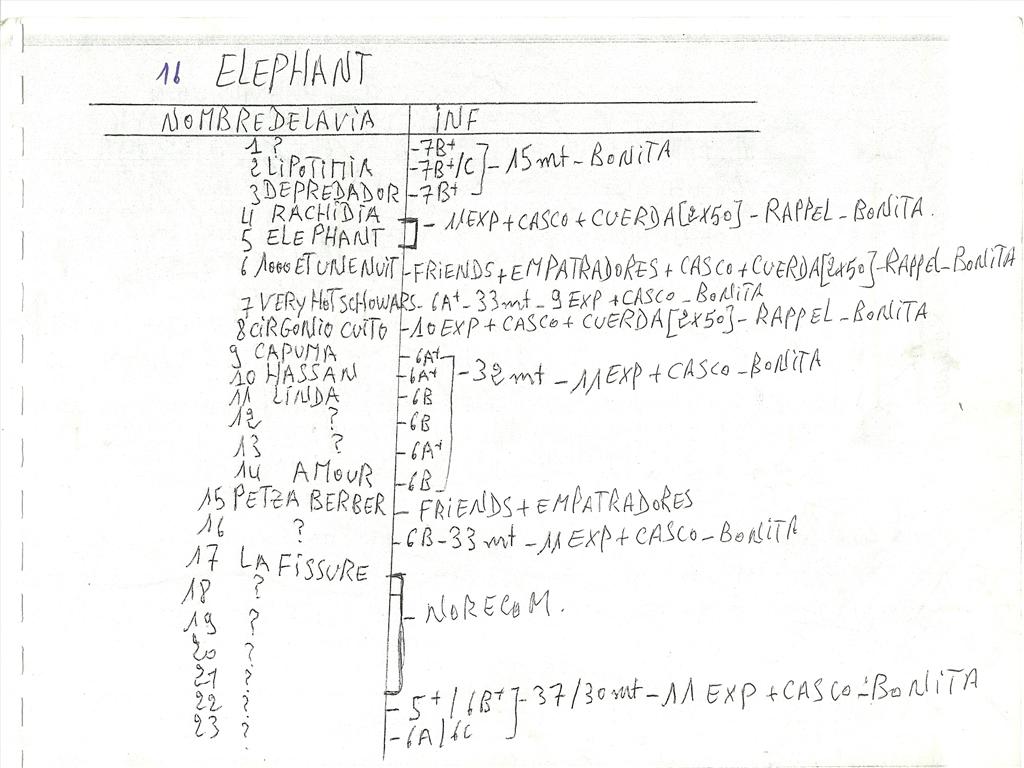 16 ELEPHANT
NOMBRE DE LA VIA INF
1 ? -7B+
2 LIPOTIMIA -7B+/C - 15 mt - BONITA
3 DEPREDADOR -7B+
4 RACHIDIA
5 ELEPHANT - 11 EXP + CASCO + CUERDA [2X50] - RAPPEL - BONITA.
6 1000 ET UNE NUIT - FRIENDS + EMPATRADORES + CASCO + CUERDA [2X50] - RAPPEL - BONITA
7 VERY HOT SCHOWARS - 6A+ - 33 mt - 9 EXP + CASCO - BONITA
8 CIRGONIO CUITO - 10 EXP + CASCO + CUERDA [2X50] - RAPPEL - BONITA
9 CAPUMA - 6A+
10 HASSAN - 6A+ - 32 mt - 11 EXP + CASCO - BONITA
11 LINDA - 6B
12 ? - 6B
13 ? - 6A+
14 AMOUR - 6B
15 PETZA BERBER - FRIENDS + EMPATRADORES
16 ? - 6B - 33 mt - 11 EXP + CASCO - BONITA
17 LA FISSURE
18 ?
19 ? - NO RECOM.
20 ?
21 ?
22 ? - 5+/6B+ - 37/30 mt - 11 EXP + CASCO - BONITA
23 ? - 6A/6C